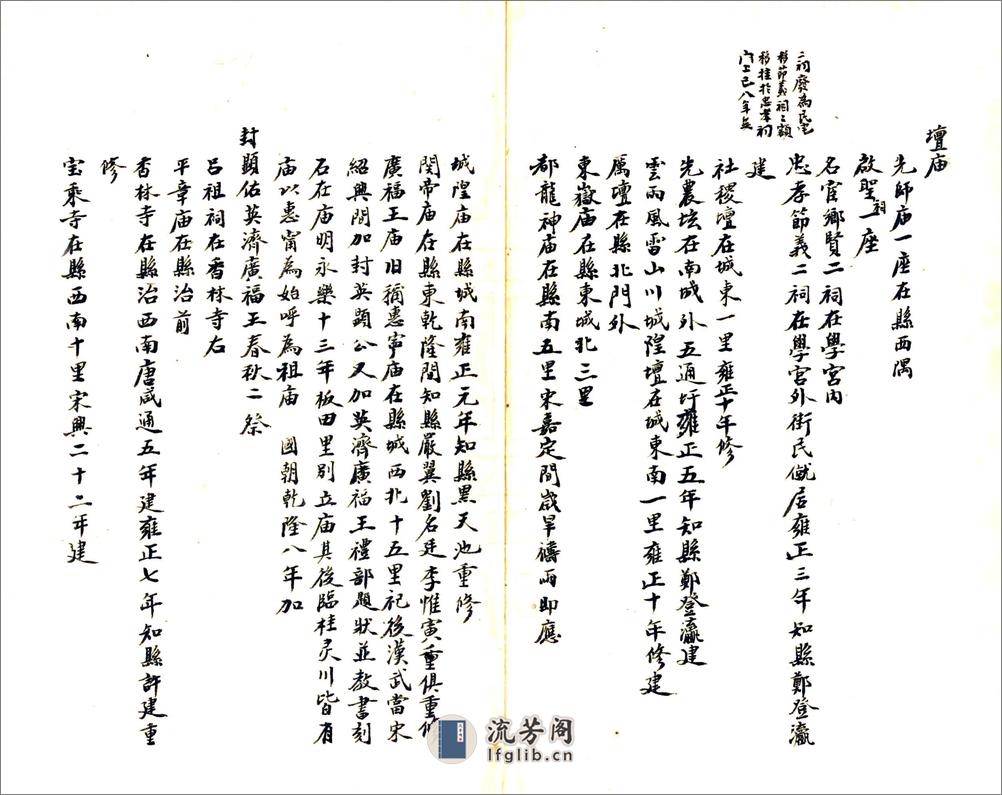 壇庙
先師庙一座在縣西隅
啟聖祠一座
名宦鄉賢二祠在學宮內
忠孝節義二祠在學宮外街民僦居雍正三年知縣鄭登瀛
建
二祠廢為民宅
移節義祠之額
移挂於忠孝祠
門上已八年矣
社稷壇在城東一里雍正十年修
先農坛在南城外五通圩雍正五年知縣鄭登瀛建
雲雨風雷山川城隍壇在城東南一里雍正十年修建
厲壇在縣北門外
東嶽庙在縣東城北三里
都龍神庙在縣南五里宋嘉定間歲旱禱雨即應
城隍庙在縣城南雍正元年知縣黑天池重修
関帝庙在縣東乾隆間知縣嚴翼劉名廷李惟寅重俱重修
廣福王庙旧稱惠寧庙在縣城西北十五里祀後漢武當宋
紹興間加封英顯公又加英濟廣福王禮部題狀並教書刻
石在庙明永樂十三年板田里別立庙其後臨桂灵川皆有
庙以惠甯為始呼為祖庙 國朝乾隆八年加
封顯佑英濟廣福王春秋二祭
呂祖祠在香林寺右
平章庙在縣治前
香林寺在縣治西南唐咸通五年建雍正七年知縣許建重
修
宝乘寺在縣西南十里宋興二十二年建
流芳阁
lfglib.cn